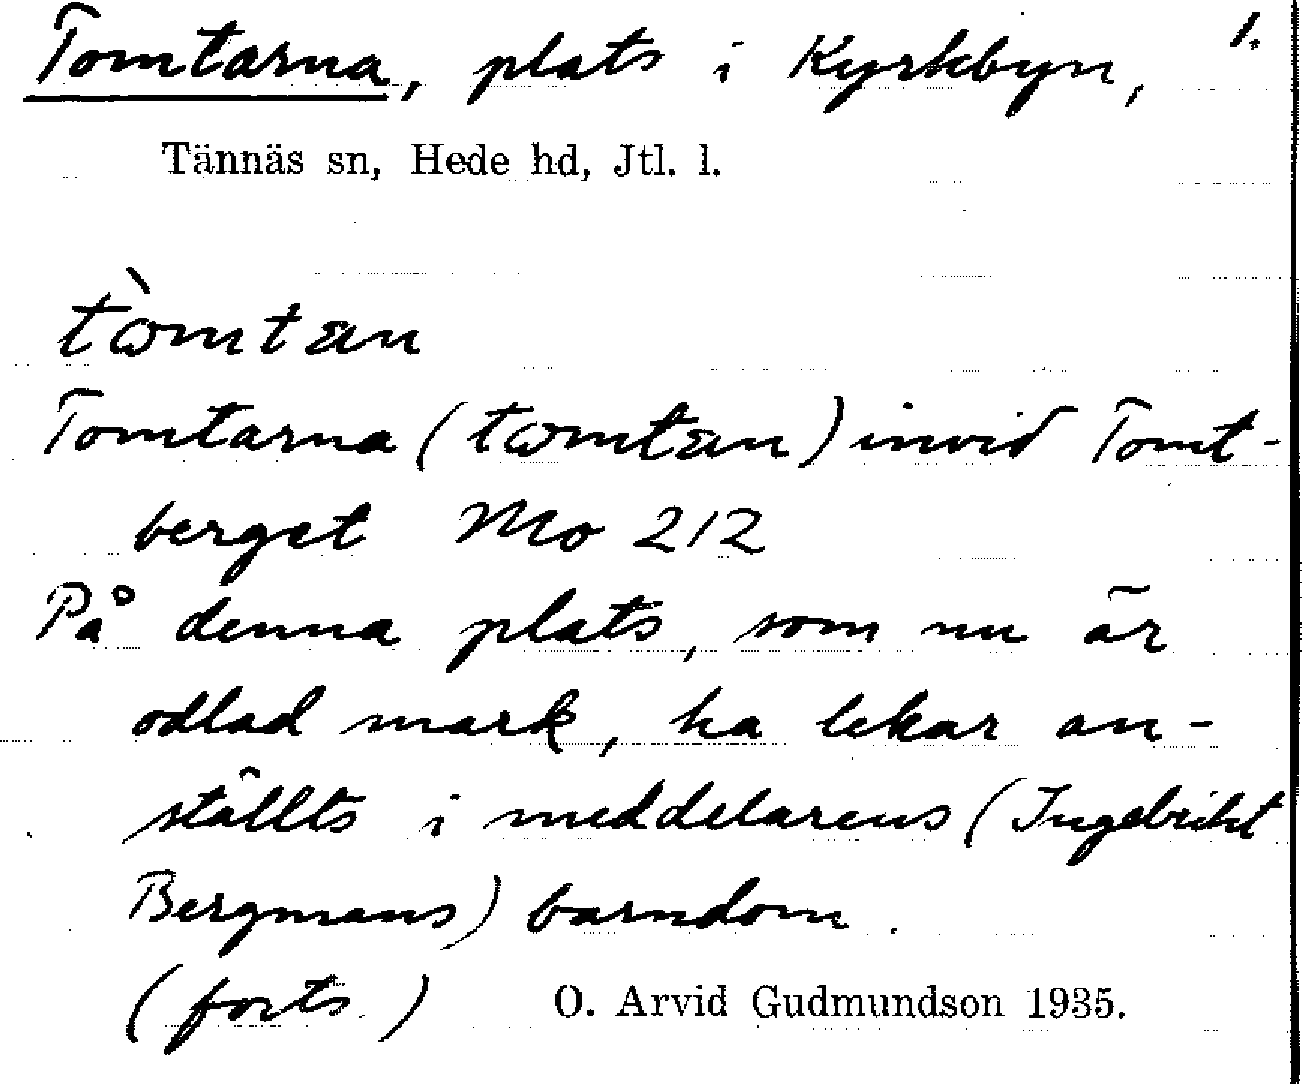 Tomtarna, plats i Kyrkbyn, 1.
Tännäs sn, Hede hd, Jtl. l.
tòmtæn
Tomtarna (tomtæn) invid Tomt-
berget Mo 212
På denna plats, som nu är
odlad mark, ha lekar an-
ställts i meddelarens (Ingebrikt
Bergmans) barndom.
(forts.) O. Arvid Gudmundson 1935.